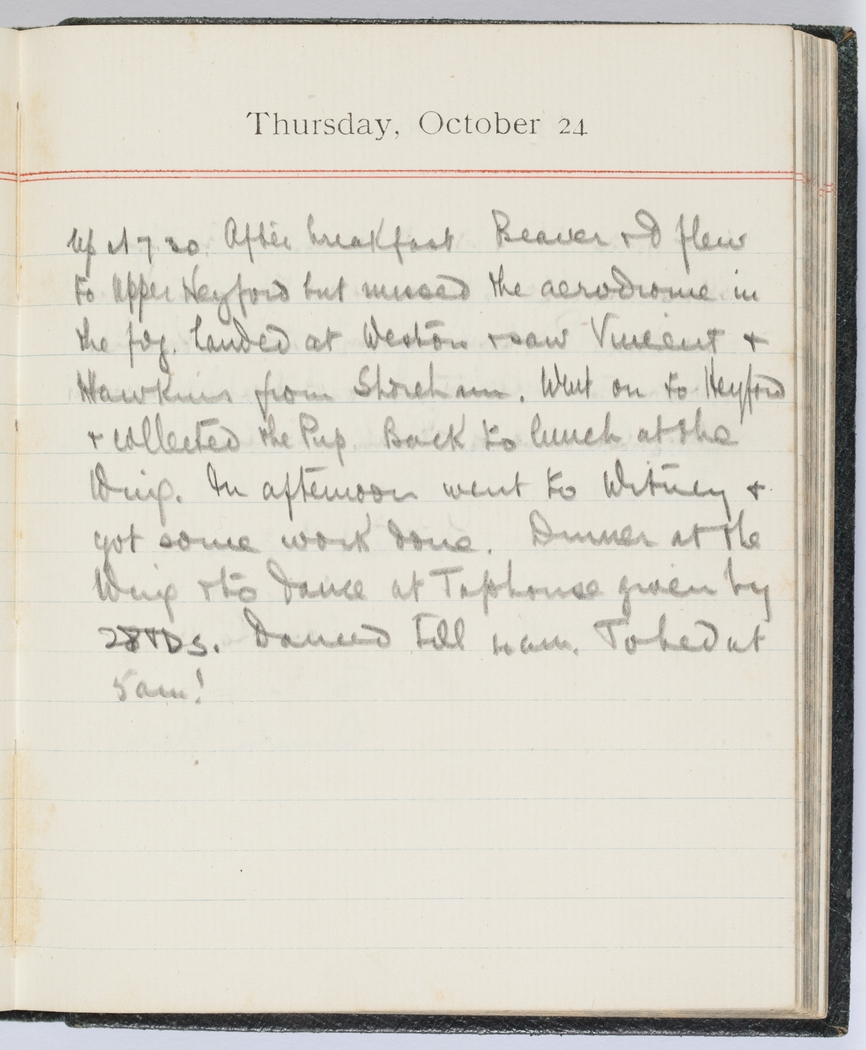 Thursday, October 24
Up at 7 30. After breakfast Beaver + I flew
to Upper Heyford but missed the aerodrome in
the fog. Landed at Weston + saw Vincent +
Hawkins from Shoreham. Went on to Heyford
+ collected the Pup. Back to lunch at the
Wing. In afternoon went to Witney +
got some work done. Dinner at the
Wing + to Dance at Taphouse given by
28TDS. Danced till 4 am. To bed at
5 am!